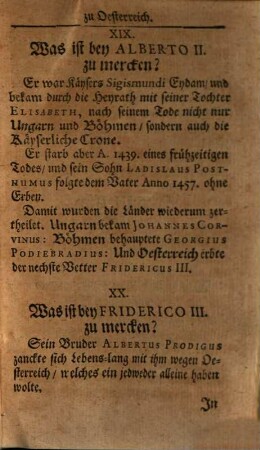 zu Oesterreich.
XIX.
Was ist bey ALBERTO II.
zu mercken?
Er war Käysers Sigismundi Eydam/ und
bekam durch die Heyrath mit seiner Tochter
ELISABETH, nach seinem Tode nicht nur
Ungarn und Böhmen/ sondern auch die
Käyserliche Crone.
Er starb aber A. 1439. eines frühzeitigen
Todes/ und sein Sohn LADISLAUS POST-
HUMUS folgte dem Vater Anno 1457. ohne
Erben.
Damit wurden die Länder wiederum zer-
theilet. Ungarn bekam JOHANNES COR-
VINUS: Böhmen behauptete GEORGIUS
PODIEBRADIUS: Und Oesterreich erbte
der nechste Vetter FRIDERICUS III.
XX.
Was ist bey FRIDERICO III.
zu mercken?
Sein Bruder ALBERTUS PRODIGUS
zanckte sich Lebens-lang mit ihm wegen Oe-
sterreich/ welches ein jedweder alleine haben
wolte.
In